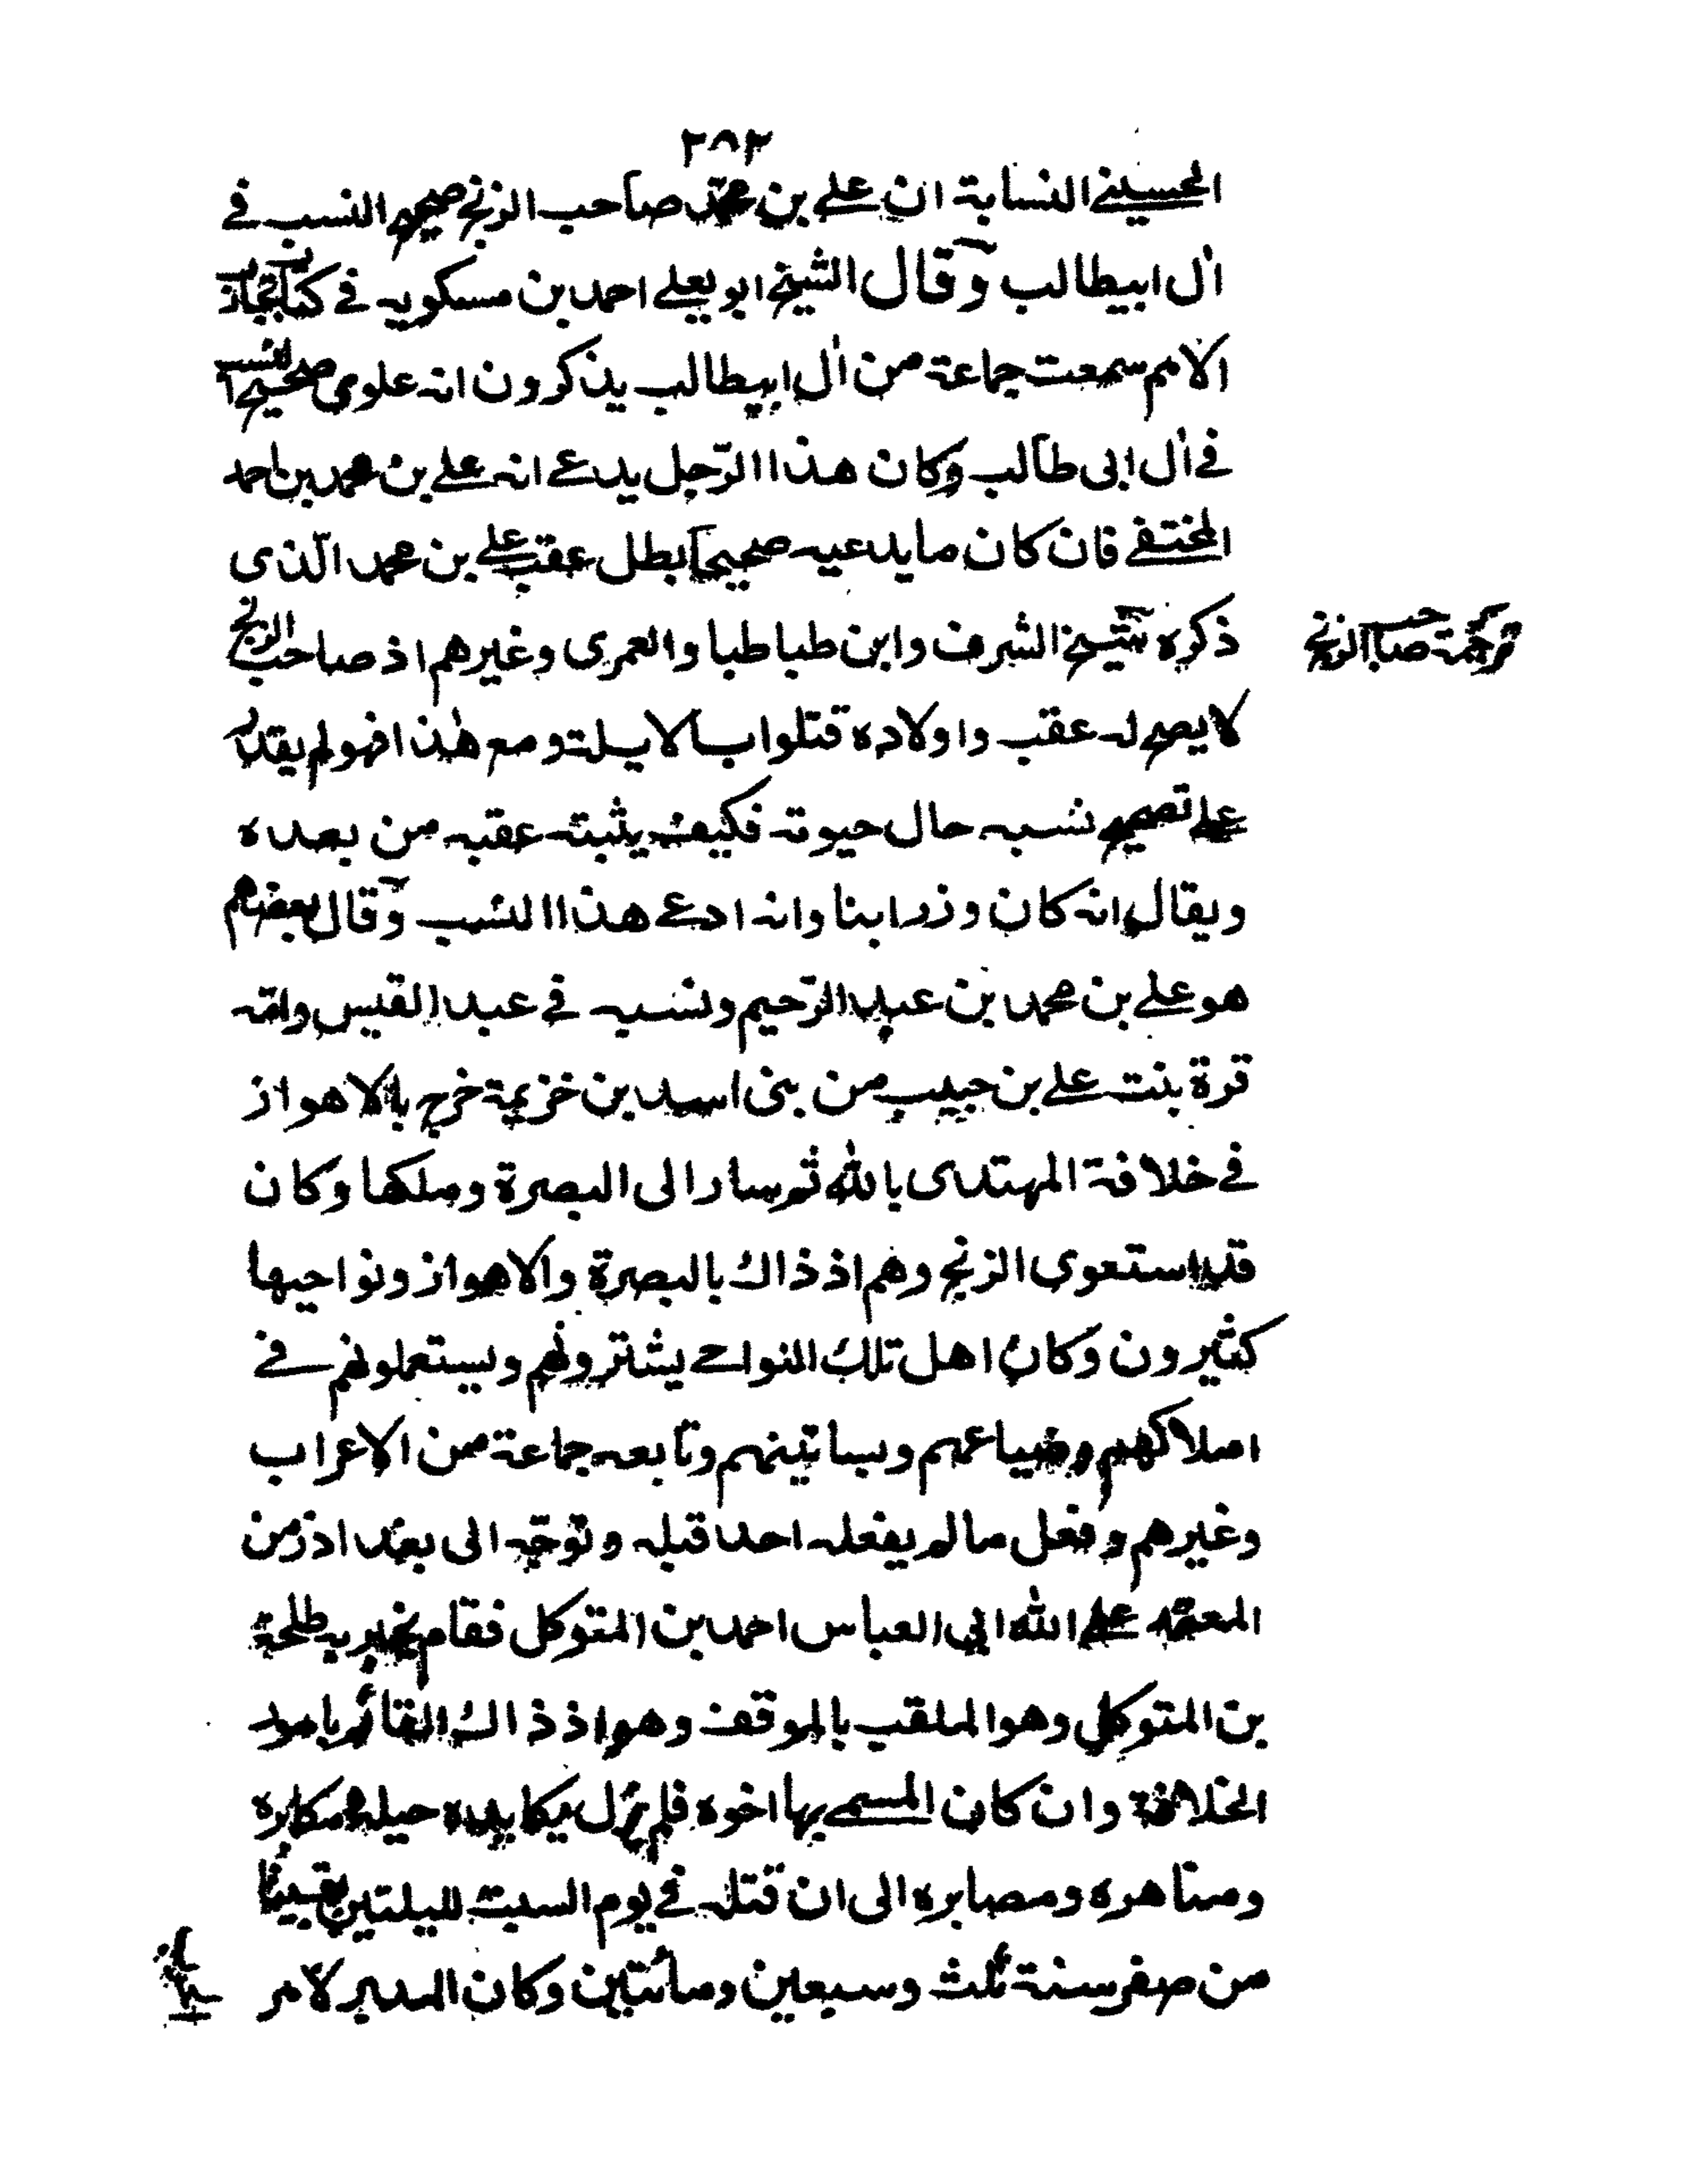 ٢٨٢
الحسيني النسابة ان علي بن محمد صاحب الزنج صحيح النسب في
اٰل ابيطالب وقال الشيخ ابو يعلى احمد بن مسكويه في كتاب تجارب
الامم سمعت جماعة من اٰل ابيطالب يذكرون انه علوي صحيح النسب
في اٰل ابى طالب وكان هذا الرّجل يدعى انه علي بن محمد بن احمد
المختفى فان كان ما يدعيه صحيحاً بطل عقب علي بن محمد الّذى
ذكره شيخ الشرف وابن طباطبا والعمرى وغيرهم اذ صاحب الزنج
ترجمة صاحب الزنج
لا يصح له عقب واولاده قتلوا بالايلة ومع هٰذا فهو لم يقدر
على تصحيح نسبه حال حيوته فكيف يثبته عقبه من بعده
ويقال انه كان وزرابنا وانه ادعى هذا النسب وقال بعضهم
هو علي بن محمد بن عبد الرّحيم ونسبه في عبد القيس وامّه
قرة بنت علي بن حبيب من بنى اسد بن خزيمة خرج بالاهواز
في خلافة المهتدى بالله ثم سار الى البصرة وملكها وكان
قد استعوى الزنج وهم اذ ذاك بالبصرة والاهواز ونواحيها
كثيرون وكان اهل تلك النواحى يشترونهم ويستعملونهم في
املاكهم وضياعهم وبساتينهم وتابعه جماعة من الاعراب
وغيرهم وفعل ما لم يفعله احد قبله وتوجّه الى بغداد زمن
المعتمد على الله ابي العباس احمد بن المتوكل فقام بحربه طلحة
بن المتوكل وهو الملقب بالموقف وهو اذ ذاك القائم بامور
الخلافة وان كان المسمى بها اخوه فلم يزل يكايده حيله ومكابره
ومناهره ومصابره الى ان قتله في يوم السبت لليلتين بقيتا
من صفر سنة ثلث وسبعين ومائتين وكان المدبر لامر